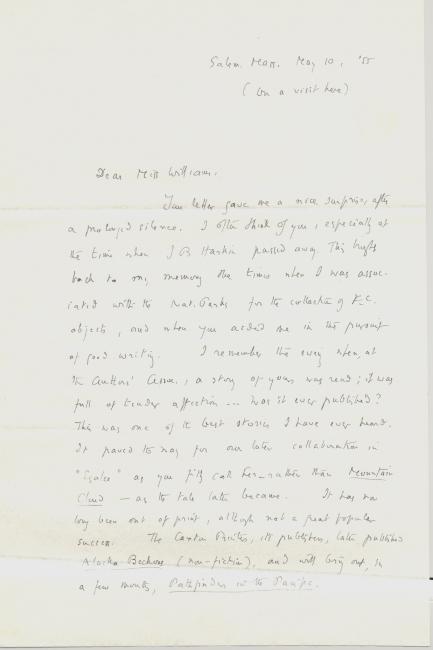 Salem. Mass. May 10, '55
(on a visit here)
Dear Miss Williams.
Your letter gave me a nice surprise, after
a prolonged silence. I often think of you, especially at
the time when J B Harkin passed away. This brings
back to my memory the times when I was assoc-
iated with the Nat. Parks for the collection of
objects, and when you aided me in the pursuit
of good writing. I remember the evening when, at
the Authors' Assoc., a story of yours was read; it was
full of tender affection ... was it ever published?
This was one of the best stories I have ever heard.
It paved the way for our later collaboration in
as you call her - rather than Mountain
Cloud - as the tale later became. It has now
long been out of print, although not a great popular
success. The Caxton Printers, its publishers, later published
Alaska Beckons (non-fiction), and will bring out, in
a few months, Pathfinders in the Pacific.